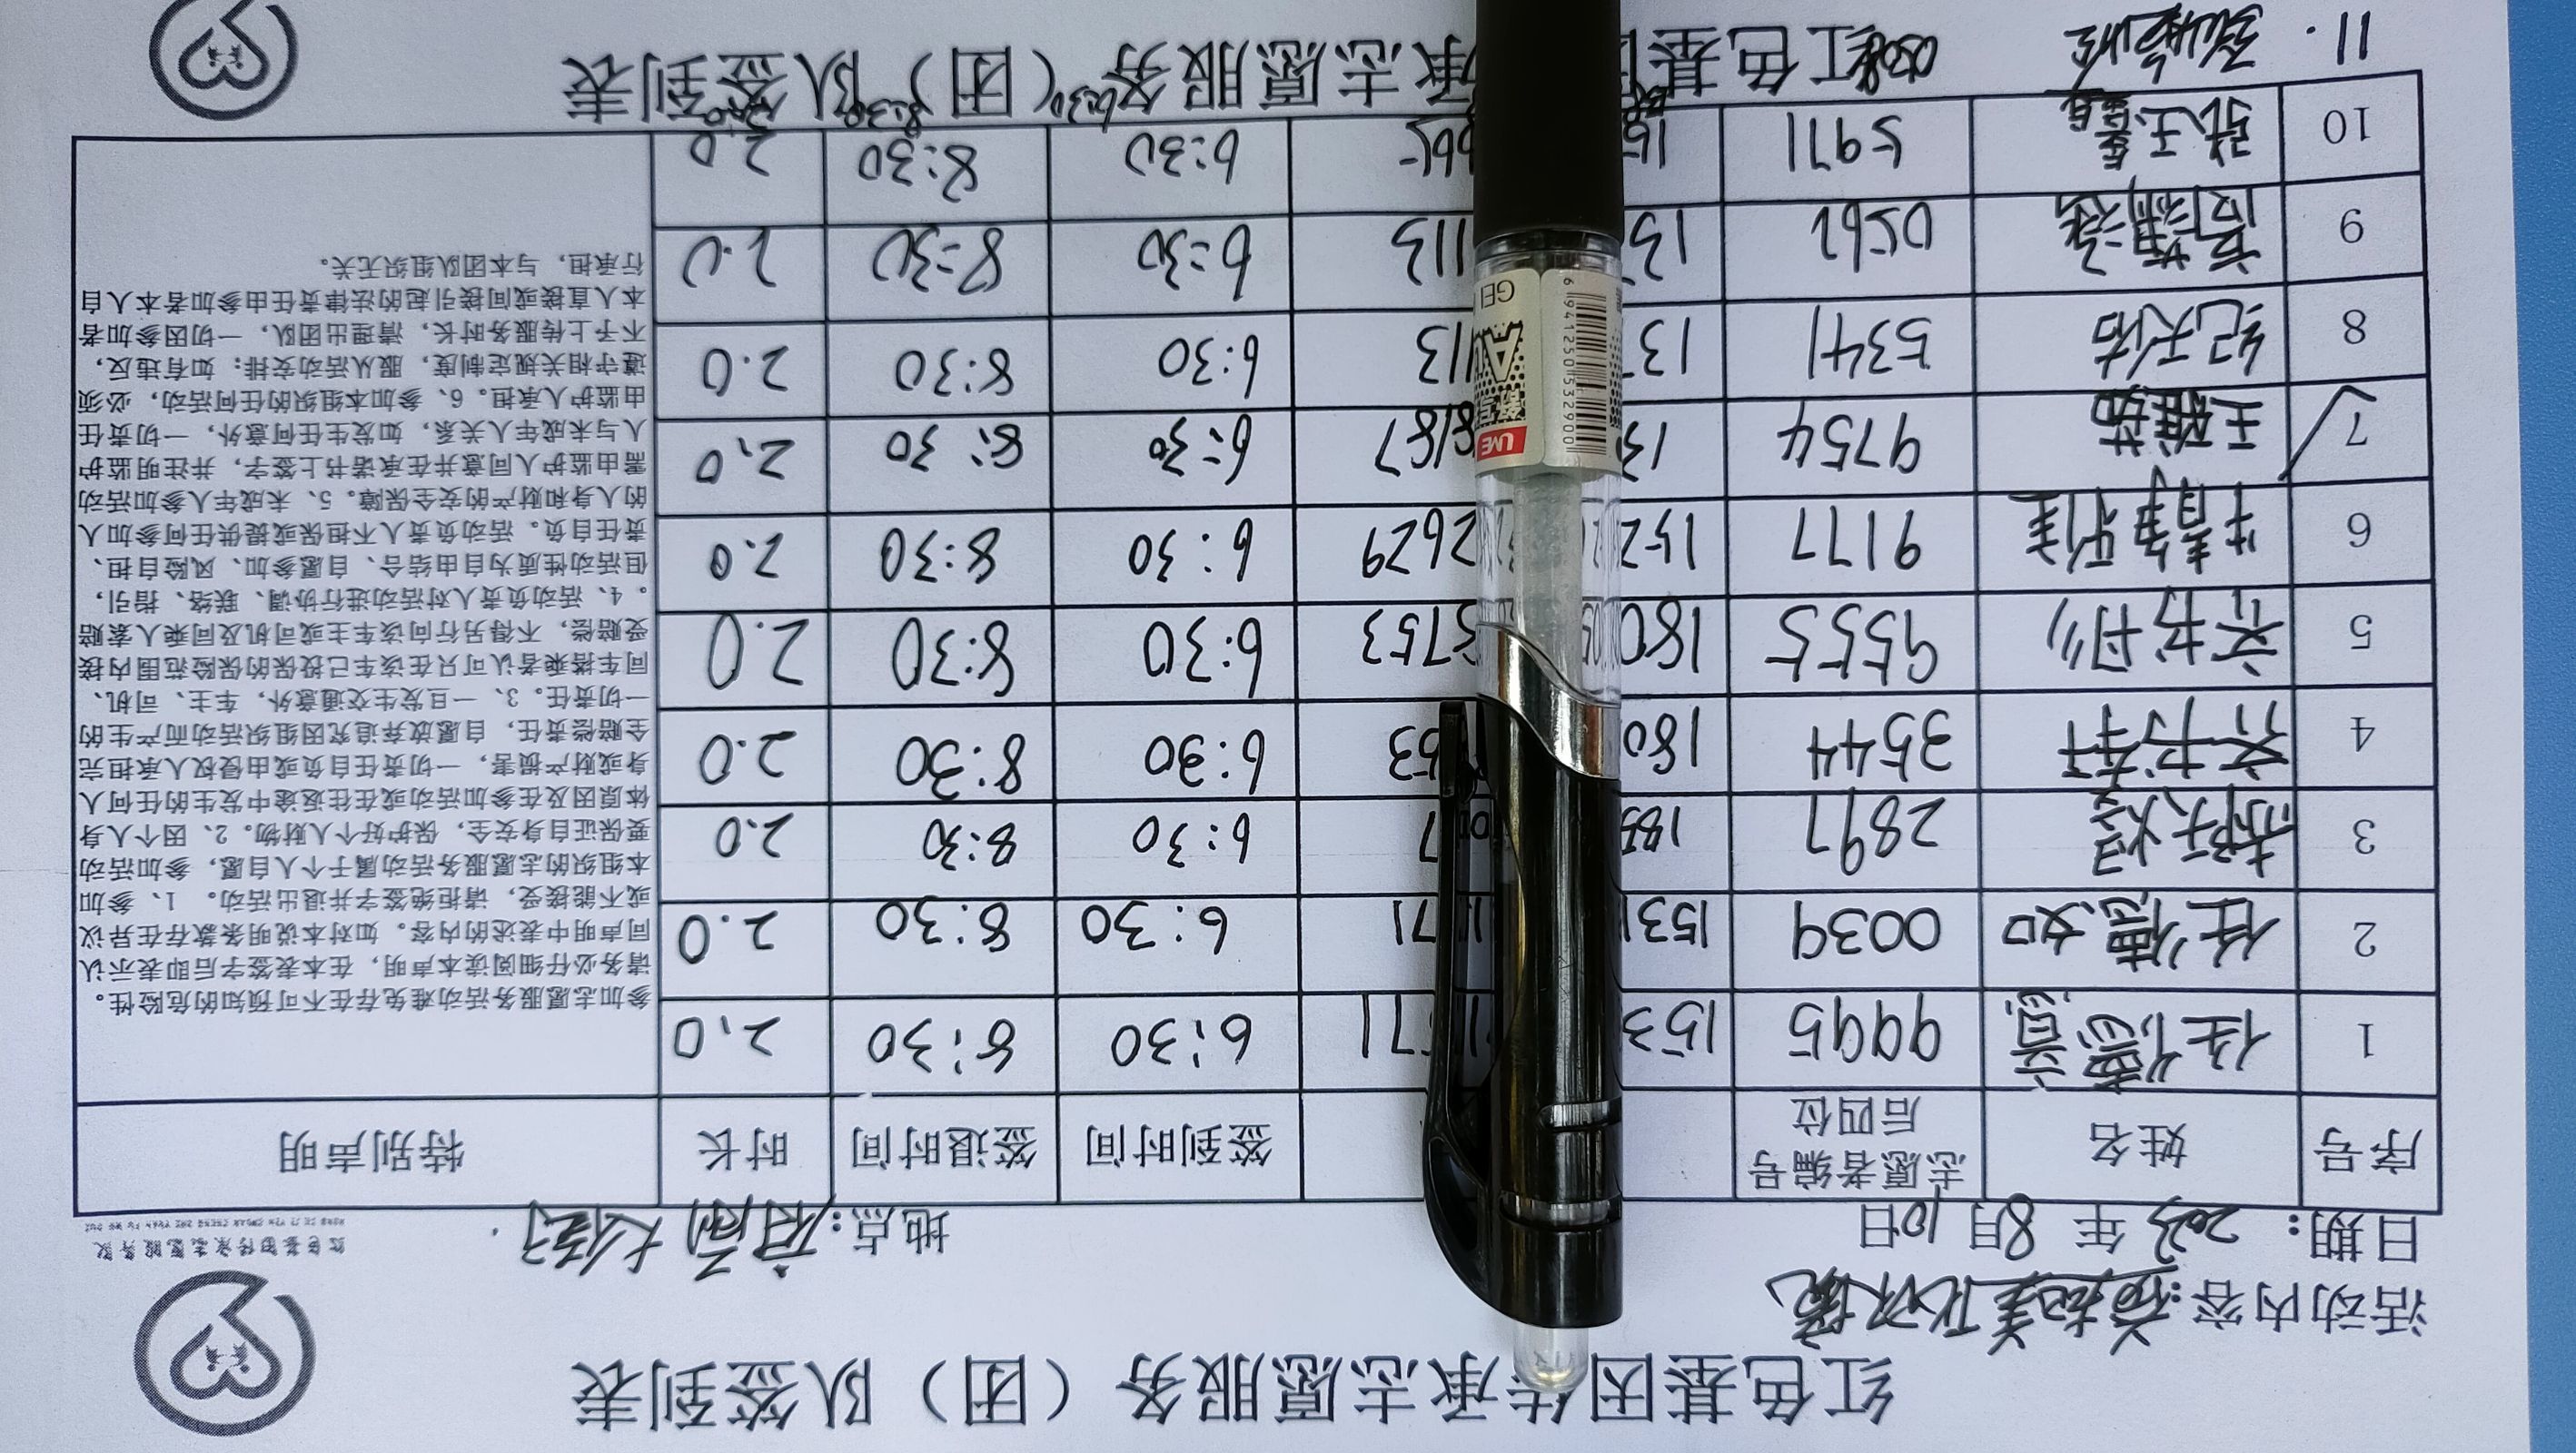 红色基因传承志愿服务（团）队签到表
活动内容：美化环境
日期：2023年8月10日 地点：
红色基因传承志愿服务队
序号 姓名 志愿者编号后四位 签到时间 签退时间 时长 特别声明
1 任德馨 9995 153 71 6:30 8:30 2.0
2 任德如 0039 153 71 6:30 8:30 2.0
3 郝天煜 2897 185 7 6:30 8:30 2.0
4 齐书轩 3544 180 53 6:30 8:30 2.0
5 齐书玥 9555 180 3753 6:30 8:30 2.0
6 牛静利 9177 152 2629 6:30 8:30 2.0
7 王雅茹 9754 13 8187 6:30 8:30 2.0
8 纪天佑 5341 13 113 6:30 8:30 2.0
9 0562 13 113 6:30 8:30 2.0
10 张玉 5971 15 665 6:30 8:30 2.0
11. 6:30 8:30 2.0
参加志愿服务活动难免存在不可预知的危险性。
请务必仔细阅读本声明，在本表签字后即表示认
同声明中表述的内容。如对本说明条款存在异议
或不能接受，请拒绝签字并退出活动。 1、参加
本组织的志愿服务活动属于个人自愿，参加活动
要保证自身安全，保护好个人财物。2、因个人身
体原因及在参加活动或在往返途中发生的任何人
身或财产损害，一切责任自负或由侵权人承担完
全赔偿责任，自愿放弃追究因组织活动而产生的
一切责任。3、一旦发生交通意外，车主、司机、
同车搭乘者认可只在该车已投保的保险范围内接
受赔偿，不得另行向该车主或司机及同乘人索赔
。4、活动负责人对活动进行协调、联络、指引，
但活动性质为自由结合、自愿参加、风险自担、
责任自负。活动负责人不担保或提供任何参加人
的人身和财产的安全保障。5、未成年人参加活动
需由监护人同意并在承诺书上签字，并注明监护
人与未成年人关系，如发生任何意外，一切责任
由监护人承担。6、参加本组织的任何活动，必须
遵守相关规定制度，服从活动安排；如有违反，
不予上传服务时长，清理出团队，一切因参加者
本人直接或间接引起的法律责任由参加者本人自
行承担，与本团队组织无关。
红色基因承志愿服务（团）队签到表
UME
GEL
6941250532900